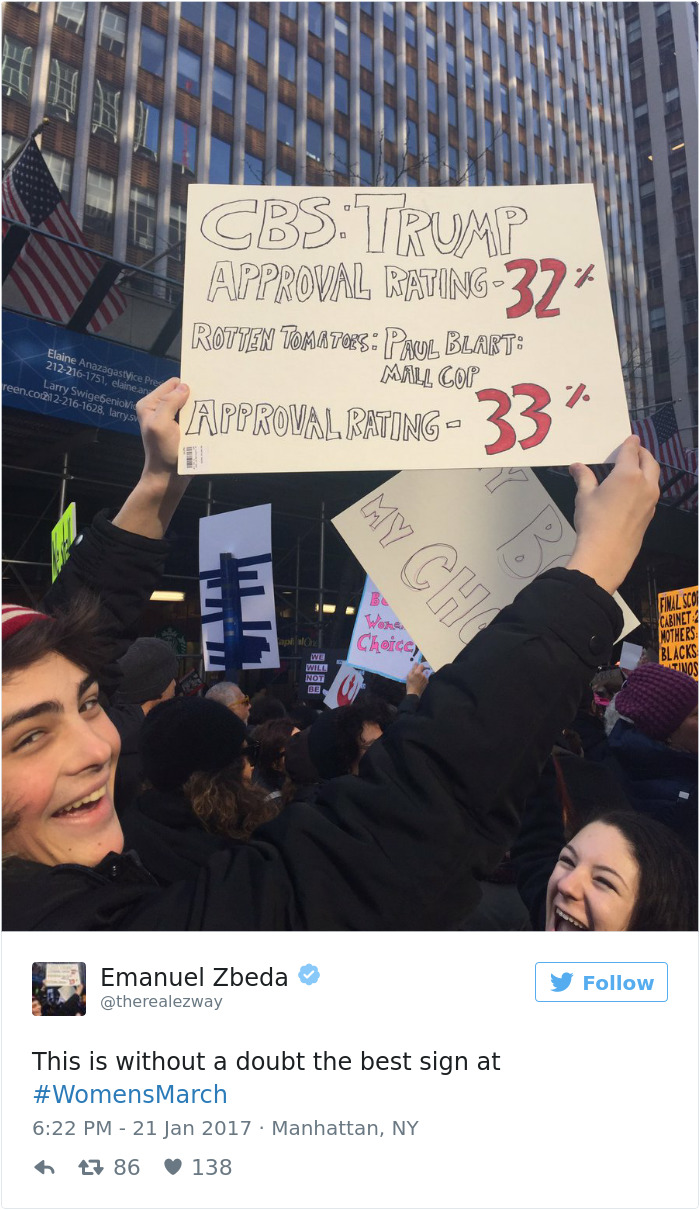 CBS: TRUMP
APPROVAL RATING - 32%
ROTTEN TOMATOES: PAUL BLART:
MALL COP
APPROVAL RATING - 33%
Elaine
212-216-1751, elaine
Larry
212-216-1628, larry
MY CHO
Y BO
Choice
WE
WILL
NOT
BE
FINAL SCO
CABINET
MOTHERS
BLACKS
TINOS
Emanuel Zbeda
Follow
@therealezway
This is without a doubt the best sign at
#WomensMarch
6:22 PM - 21 Jan 2017 · Manhattan, NY
86 138